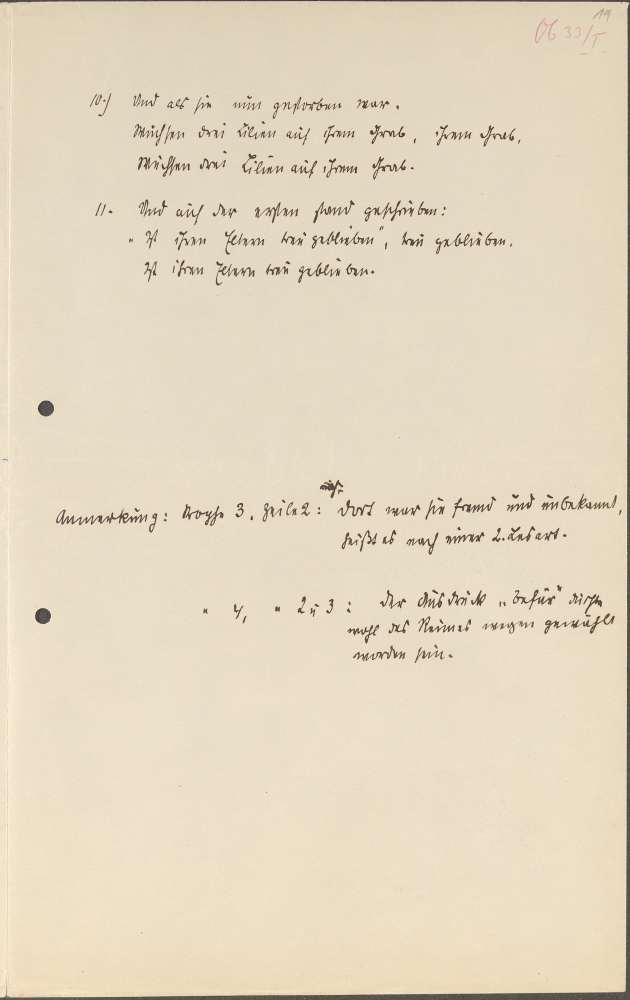 19
Ob 33/I
10.) Und als sie nun gestorben war.
Wuchsen drei Lilien auf ihrem Grab, ihrem Grab,
Wuchsen drei Lilien auf ihrem Grab.
11. Und auf der ersten stand geschrieben:
"Ist ihren Eltern treu geblieben", treu geblieben.
Ist ihren Eltern treu geblieben.
Anmerkung: Strophe 3. Zeile 2: Dort war sie fremd und unbekannt,
heißt es nach einer 2. Lesart.
" 4, " 2 u 3: der Ausdruck "befür" dürfte
wohl des Reimes wegen gewählt
worden sein.